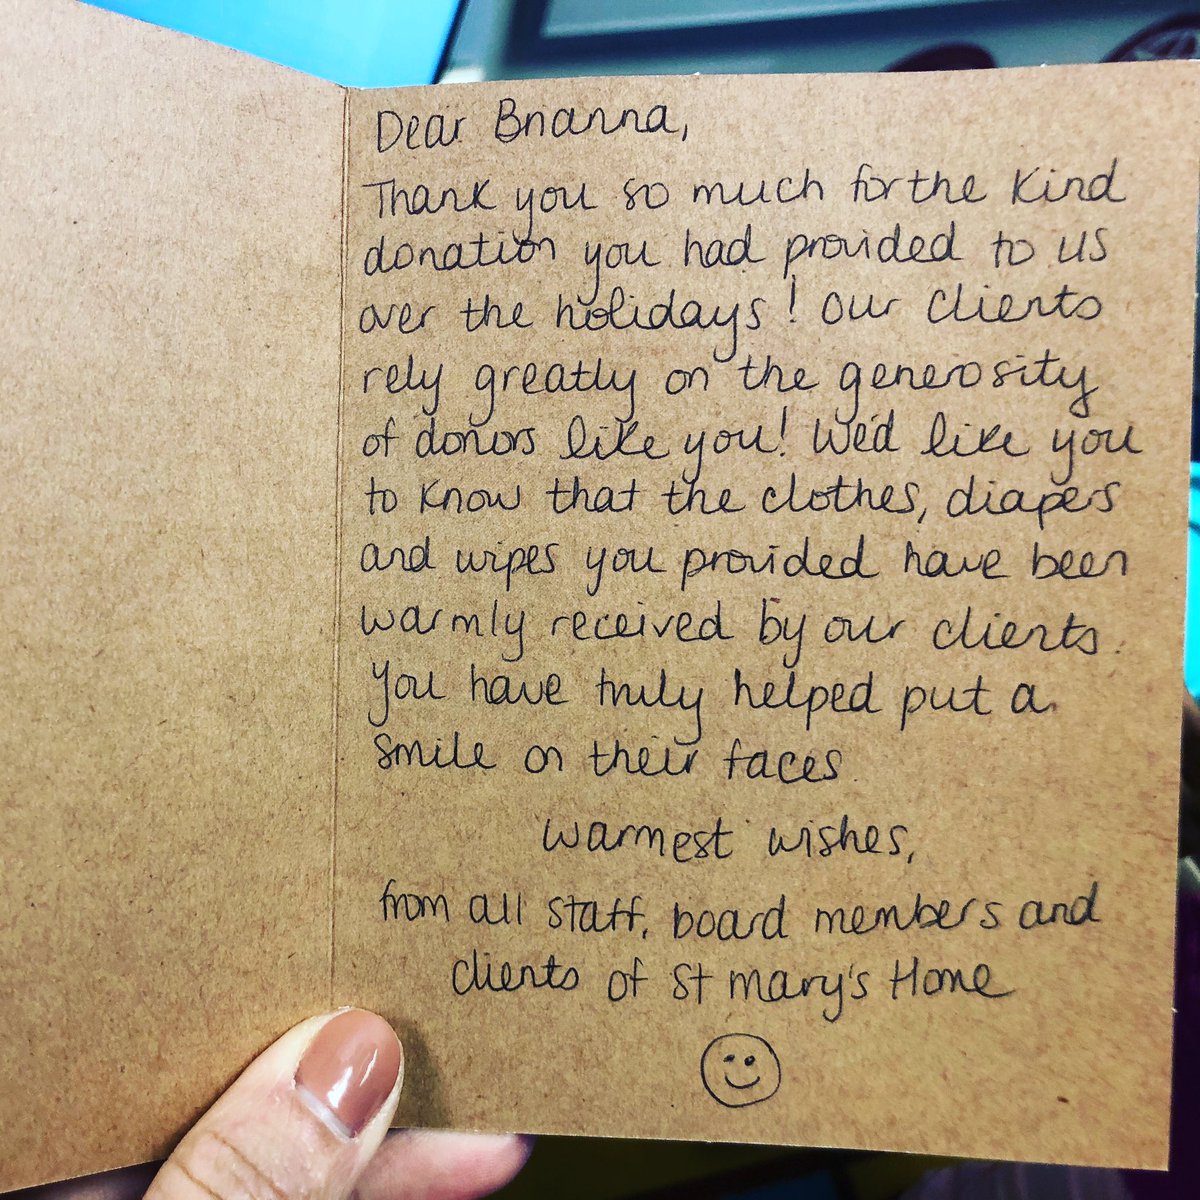 Dear Brianna,
Thank you so much for the kind
donation you had provided to us
over the holidays! Our clients
rely greatly on the generosity
of donors like you! We'd like you
to know that the clothes, diapers
and wipes you provided have been
warmly received by our clients.
You have truly helped put a
smile on their faces.
Warmest wishes,
from all staff, board members and
clients of St Mary's Home